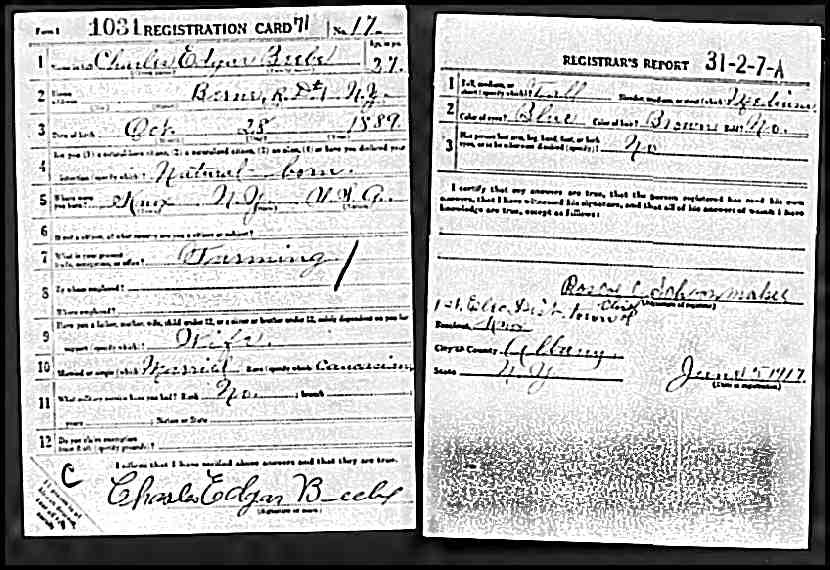 Form 1 1031 REGISTRATION CARD 71 No. 17
1 Charles Edgar Beebe Age, in yrs. 27
2 Berne, R.D. #1 N.Y.
3 Date of birth Oct 28 1889
4 Are you (1) a natural born citizen, (2) a naturalized citizen, (3) an alien, (4) or have you declared your
intention (specify which)? Natural born.
5 Where were you born? Knox N.Y. U.S.A.
6 If not a citizen, of what country are you a citizen or subject?
7 What is your present trade, occupation, or office? Farming
8 By whom employed?
Where employed?
9 Have you a father, mother, wife, child under 12, or a sister or brother under 12, solely dependent on you for
support (specify which)? Wife.
10 Married or single (which)? Married Race (specify which)? Caucasian
11 What military service have you had? Rank No. ; branch
years ; Nation or State
12 Do you claim exemption from draft (specify grounds)?
I affirm that I have verified above answers and that they are true.
C
Charles Edgar Beebe
(Signature or mark)
REGISTRAR'S REPORT 31-2-7-A
1 Tall, medium, or short (specify which)? Slender, medium, or stout (which)? Medium
2 Color of eyes? Blue Color of hair? Brown Bald? No.
3 Has person lost arm, leg, hand, foot, or both eyes, or is he otherwise disabled (specify)? No
I certify that my answers are true, that the person registered has read his own
answers, that I have witnessed his signature, and that all of his answers of which I have
knowledge are true, except as follows:
Roscoe C. Schoonmaker
1st. Elec. Dist. town of Clerk (Signature of registrar)
Precinct Knox
City or County Albany.
State N.Y. June 5 1917
(Date of registration)